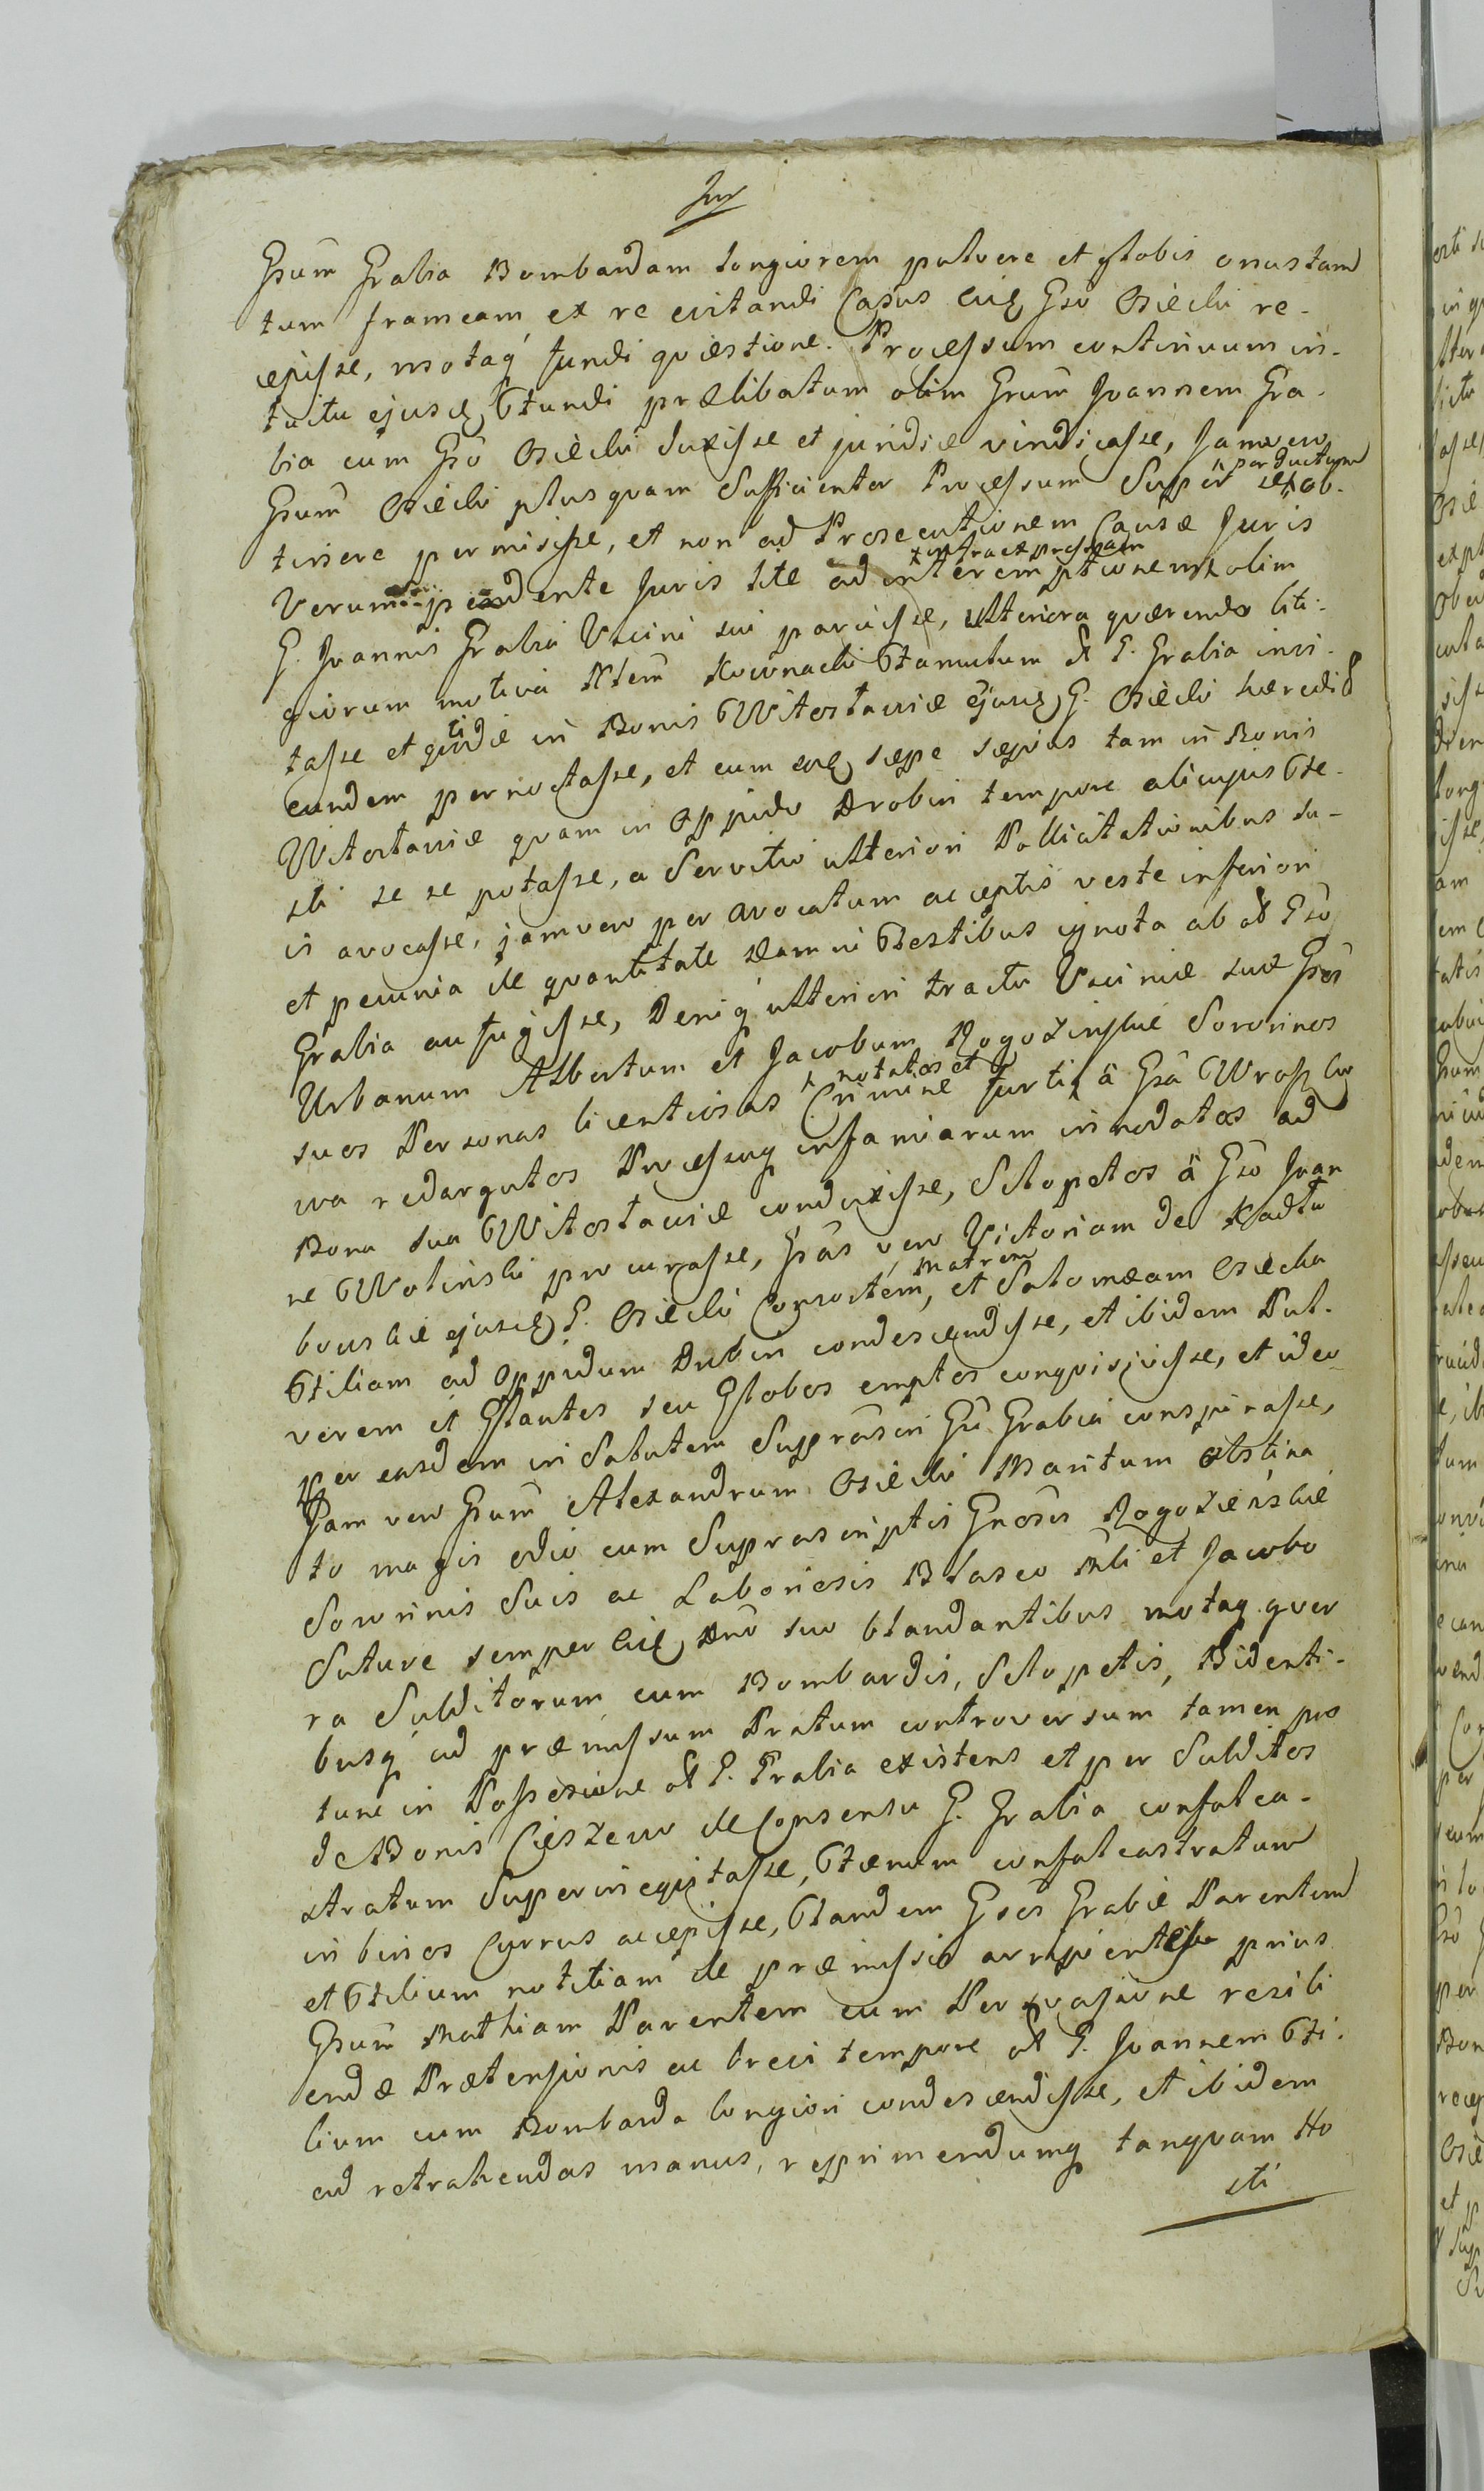 Gsum Grabia Bombardam longiorem pulvere et globis onustam
tum frameam ex re evitandi Casus eidem Gso Osiecki re-
cepisse, motaq fundi quæstione. Processum continuum in-
tuitu ejusd Fundi prælibatum olim Gsum Joannem Gra-
bia cum Gso Osiecki duxisse et juridice vindicasse, Jam vero
Gsum Osiecki plus quam Sufficienter Processum Super se perductum ob-
tinere permisisse, et non ad Prosecutionem Causæ Juris
Verum pendente Juris lite ad interemptionem infra expressam olim
G. Joannis Grabia Vicini sui paruisse, ulteriora quærendo liti-
giorum motiva Kownacki Famulum G. Grabia invi-
tasse et quotidie in Bonis Witostawice ejusd G. Osiecki hæredis
eundem pernoctasse, et cum eod sæpe sæpius tam in Bonis
Witostawice quam in Oppido Drobin tempore alicujus Fe-
sti se se potasse, a Servitio ulteriori Pollicitationibus su-
is avocasse, jam vero per avocatum acceptis veste inferiori
et pecunia de quantitate eam in Testibus ignota ab Gso
Grabia aufugisse, Deniq ulteriori tractu Vicinie suæ Gsos
Urbanum Albertum et Jacobum Rogozinskie Sororinos
suos Personas licentiosas notatos et Crimine furti à Gsa
wa redargutos Processuq infamiarum innodatos ad
Bona sua Witostawice conduxisse, Sclopetos à Gso Joan
ne Wolinski procurasse, Gsas vero Victoriam de Kadłu
bowskie ejusd G. Osiecki Consortem, matrem et Salomeam Osiecka
Filiam ad Oppidum Drobin condescendisse, et ibidem Pul-
verem et Glantes seu Globos emptos conqvisivisse, et ideo
per easdem in Salutem Suprascri Gi Grabia conspirasse,
Jam vero Gsum Alexandrum Osiecki Maritum obstina
to magis odio cum Suprascriptis Gnosis Rogozienskie
Sororinis Suis ac Laboriosis Blasco et Jacobo
Sutore semper eid Dno suo blandantibus motaq quer
ra Subditorum cum Bombardis, Sclopetis, Bidenti-
busq ad præmissum Pratum controversum tamen pro
tunc in Possesione G. Grabia existens et per Subditos
de Bonis Cieszewo de Consensu G. Grabia confalca-
stratum Superinequitasse, Fænum confalcastratum
in binos Currus accepisse, Tandem Gsos Grabie Parentem
et Filium notitiam de præmissis arripientes prius
Gsum Mathiam Parentem cum Persvasione resili
endæ Prætensionis ac brevi tempore G. Joannem Fi-
lium cum Bombarda longiori condescendisse, et ibidem
ad retrahendas manus, reprimendumq tanquam Ho
sti